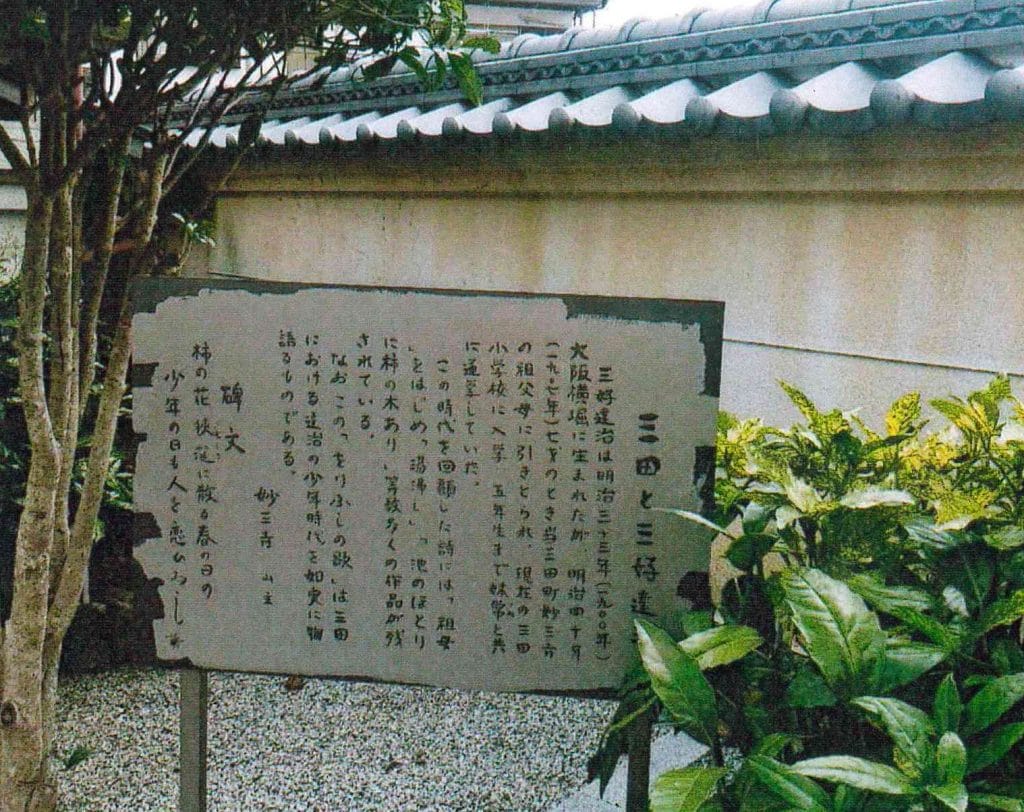 三田と三好達
三好達治は明治三十三年(一九〇〇年)
大阪横堀に生まれたが、明治四十年
(一九〇七年)七才のとき当三田町妙三寺
の祖父母に引きとられ、現在の三田
小学校に入学 五年生まで妹常と共
に通学していた。
この時代を回顧した詩には「祖母
」をはじめ「湯沸し」「池のほとり
に柿の木あり」等数多くの作品が残
されている。
なおこの「をりふしの歌」は三田
における達治の少年時代を如実に物
語るものである。
妙三寺 山主
碑文
柿の花 狭庭に散る春の日の
少年の日も人を恋ひゐし